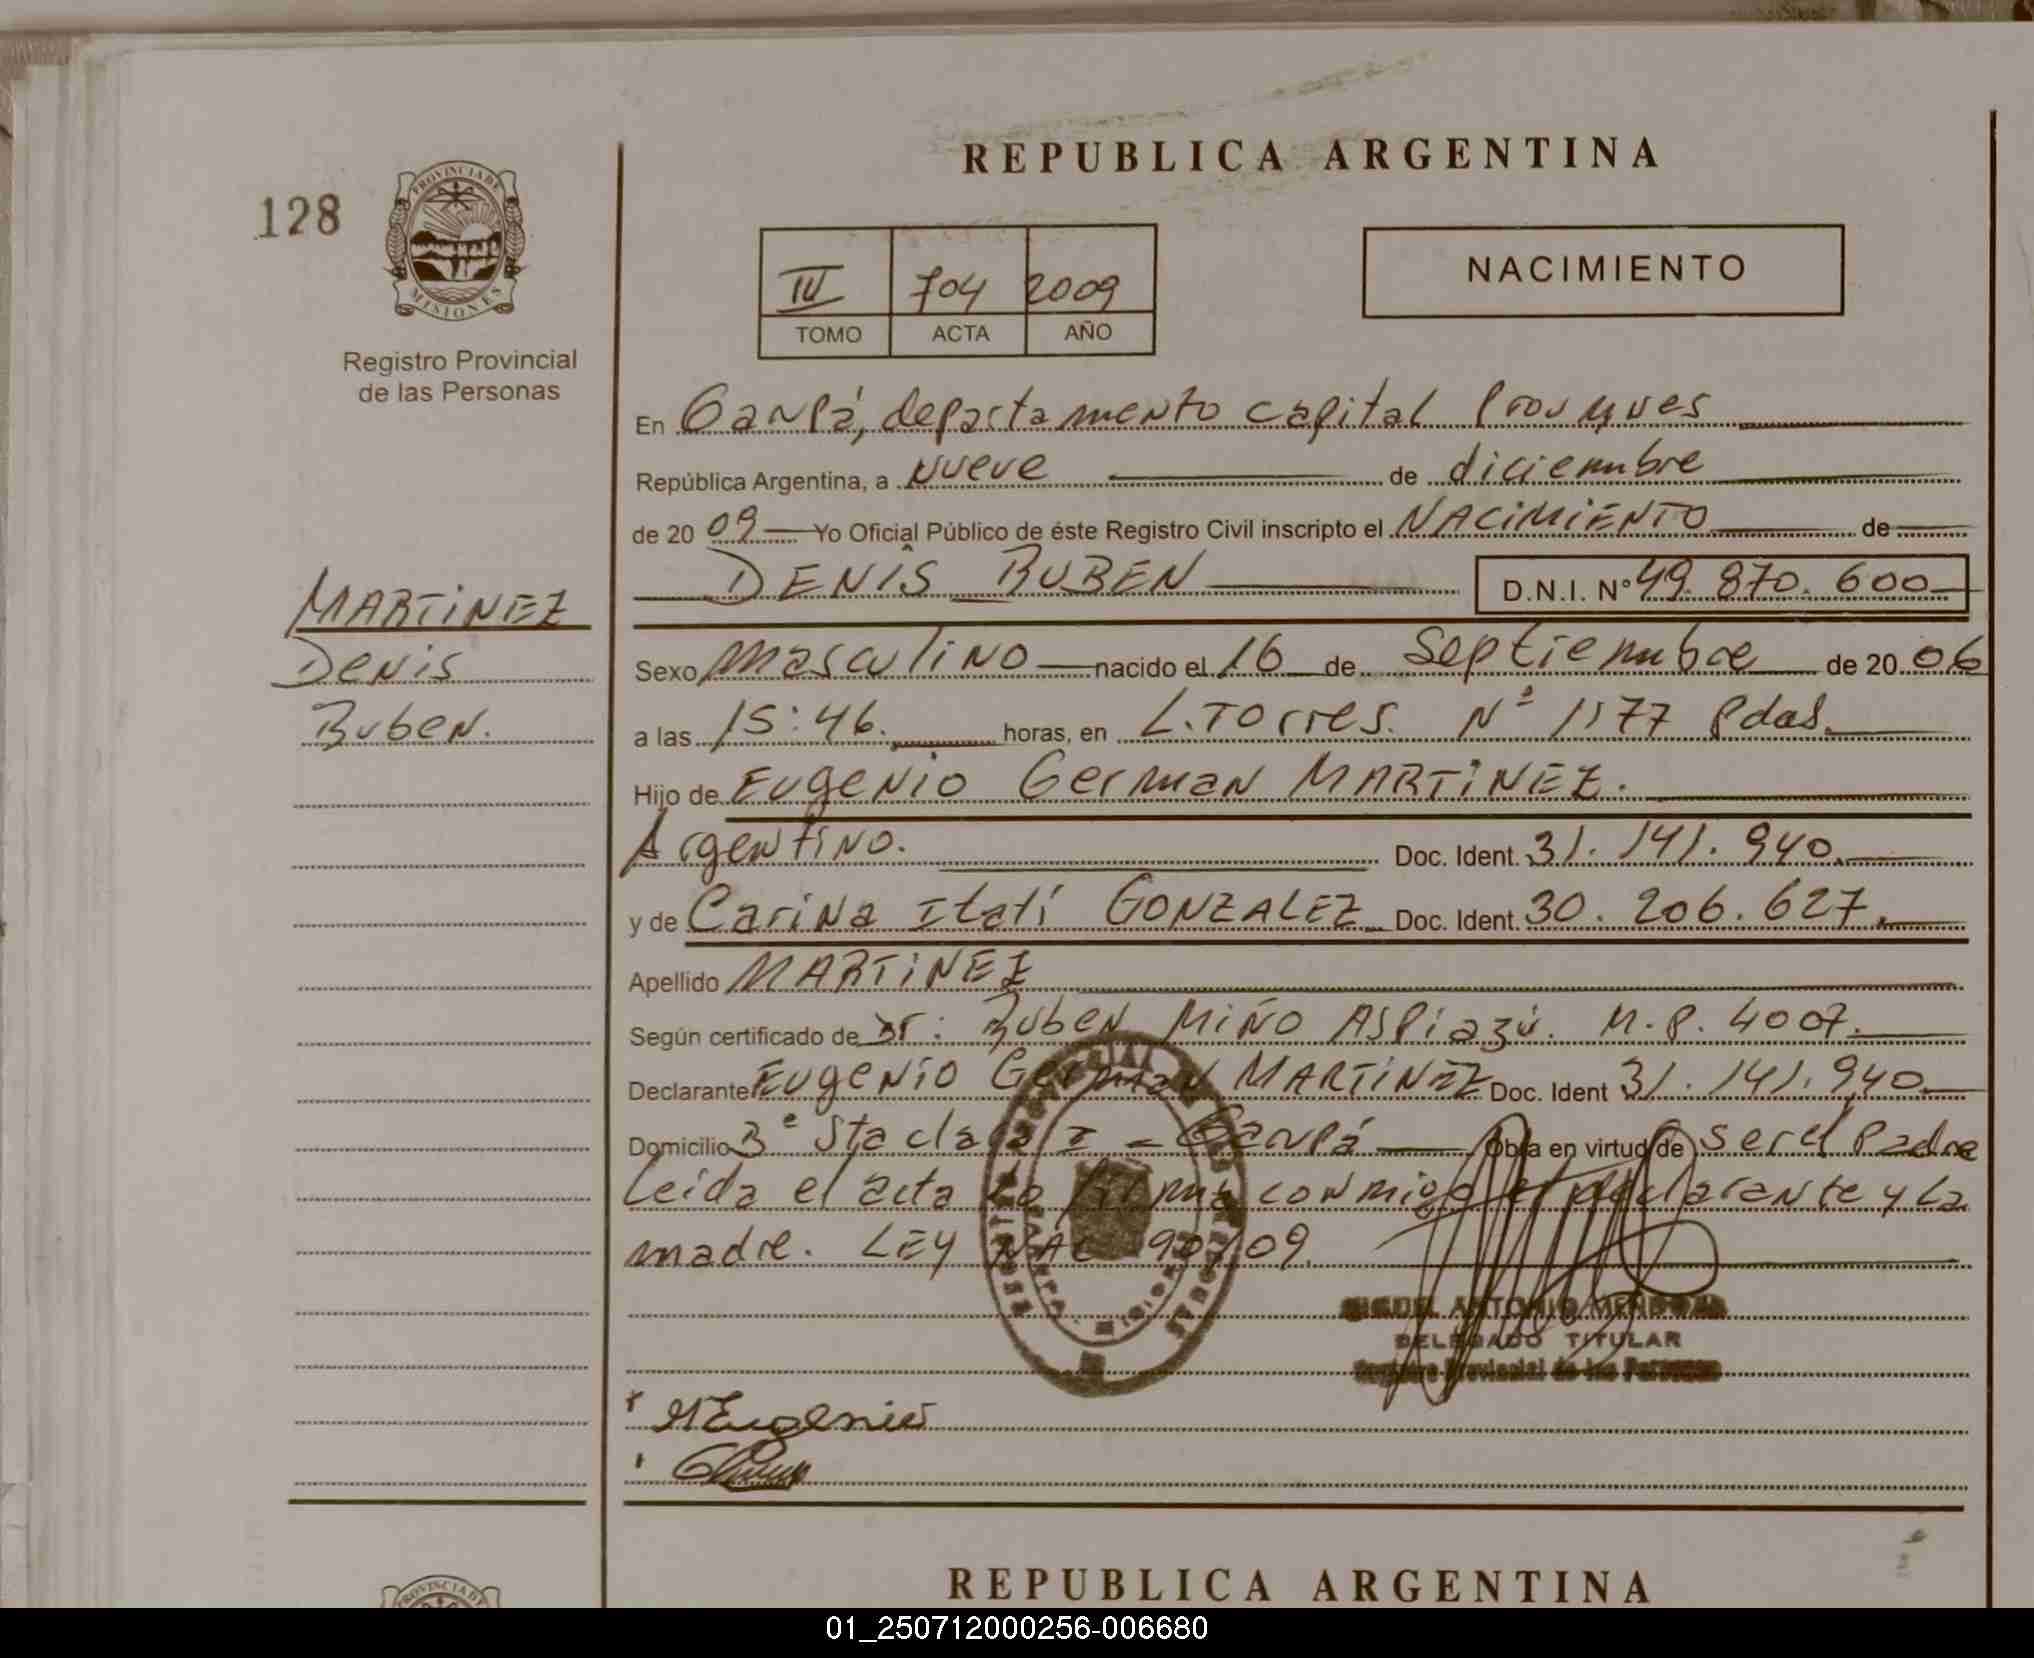 REPUBLICA ARGENTINA
128
PROVINCIA DE
MISIONES
Registro Provincial
de las Personas
NACIMIENTO
IV 704 2009
TOMO ACTA AÑO
En Garupá, departamento capital
República Argentina, a nueve de diciembre
de 20 09 Yo Oficial Público de éste Registro Civil inscripto el NACIMIENTO de
DENIS RUBEN D.N.I. N° 49.870.600
MARTINEZ
Denis
Ruben.
Sexo masculino nacido el 16 de Septiembre de 20 06
a las 15:46. horas, en L. Torres. N° 1177 Pdas.
Hijo de Eugenio German MARTINEZ.
Argentino. Doc. Ident. 31.141.940.
y de Carina Itatí GONZALEZ Doc. Ident. 30.206.627.
Apellido MARTINEZ
Según certificado de Dr: Ruben Miño Aspiazú. M.P. 4007.
Declarante Eugenio German MARTINEZ Doc. Ident 31.141.940
Domicilio B° Sta clara I - Garupá Obra en virtud de ser el Padre
Leida el acta la firma conmigo el declarante y la
madre. LEY NAC 90/09.
MIGUEL ANTONIO MENDOZA
DELEGADO TITULAR
Registro Provincial de las Personas
Eugenio
REPUBLICA ARGENTINA
PROVINCIA DE
01_250712000256-006680